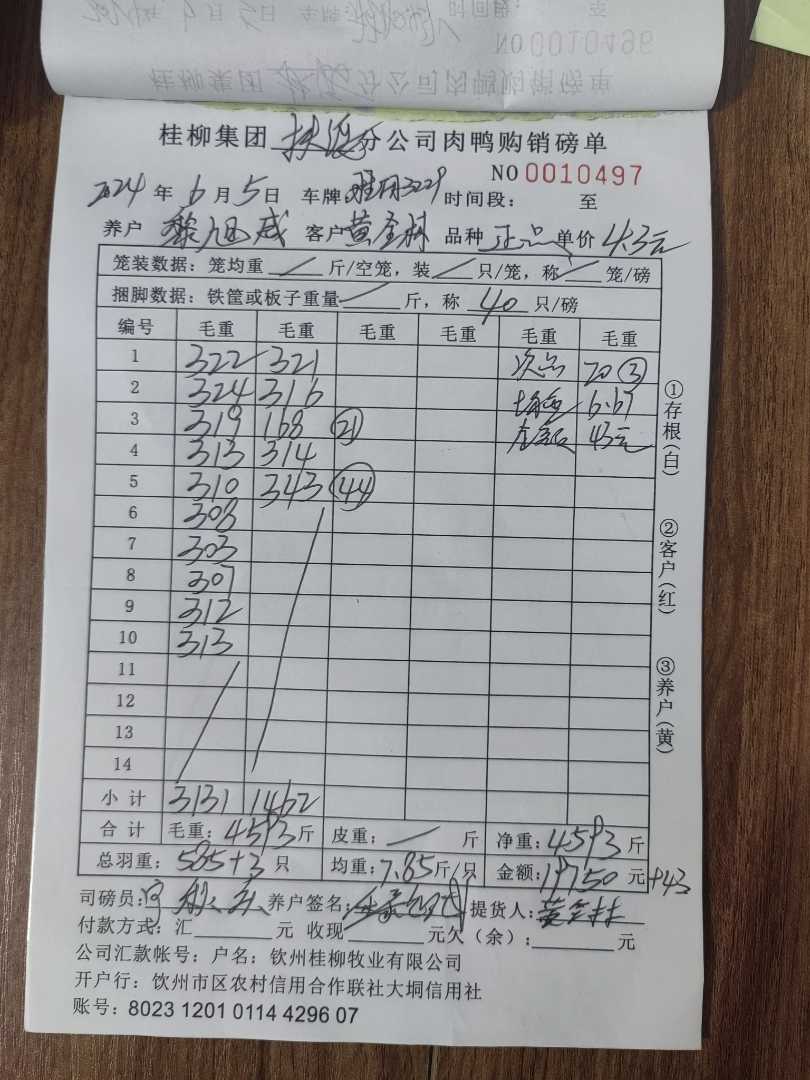 NO 0010496
桂柳集团 分公司肉鸭购销磅单
桂柳集团 分公司肉鸭购销磅单
NO 0010497
2024 年 6 月 5 日 车牌 3229 时间段: 至
养户 黎旭威 客户 黄金林 品种 正品 单价 4.3元
笼装数据: 笼均重 / 斤/空笼, 装 / 只/笼, 称 / 笼/磅
捆脚数据: 铁筐或板子重量 / 斤, 称 40 只/磅
编号 毛重 毛重 毛重 毛重 毛重 毛重
1 322 321 次品 20 ③
2 324 316 6.67
3 319 168 ㉑ 43元
4 313 314
5 310 343 ㊹
6 308
7 303
8 307
9 312
10 313
11
12
13
14
小计 3131 1462
合计 毛重: 4593 斤 皮重: / 斤 净重: 4593 斤
总羽重: 585+3 只 均重: 7.85 斤/只 金额: 19750 元 +43
司磅员: 养户签名: 提货人: 黄金林
付款方式: 汇 元 收现 元欠(余): 元
公司汇款帐号: 户名: 钦州桂柳牧业有限公司
开户行: 钦州市区农村信用合作联社大垌信用社
账号: 8023 1201 0114 4296 07
①存根(白)
②客户(红)
③养户(黄)